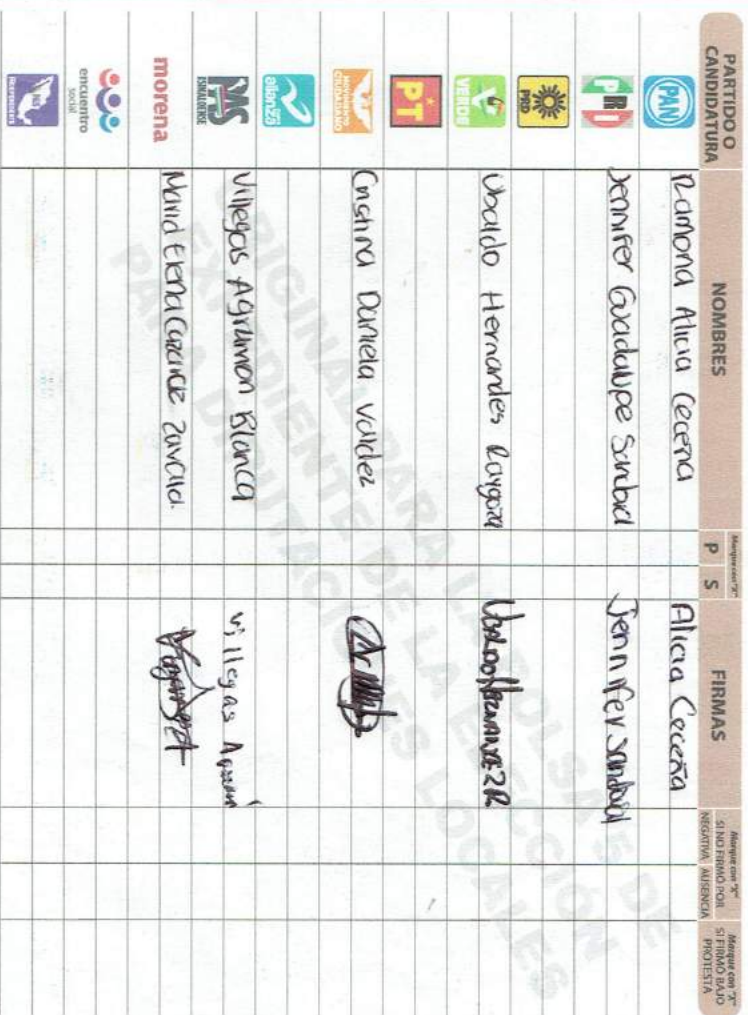 PARTIDO O CANDIDATURA NOMBRES Marque con "X" P S FIRMAS Marque con "X" SI NO FIRMÓ POR NEGATIVA AUSENCIA Marque con "X" SI FIRMÓ BAJO PROTESTA
PAN Ramona Alicia Ceceña Alicia Ceceña
PRI Jennifer Guadalupe Sandoval Jennifer Sandoval
PRD
VERDE Ubaldo Hernandes Raygoza UBALDO HERNANDEZ R
PT
MOVIMIENTO CIUDADANO Cristina Daniela Valdez
alianza
PAS SINALOENSE Villegas Agramon Blanca Villegas
morena Maria Elena Zavala
encuentro social
INDEPENDIENTE
ORIGINAL PARA LA BOLSA 5 DE
EXPEDIENTE DE LA ELECCIÓN
PARA DIPUTACIONES LOCALES